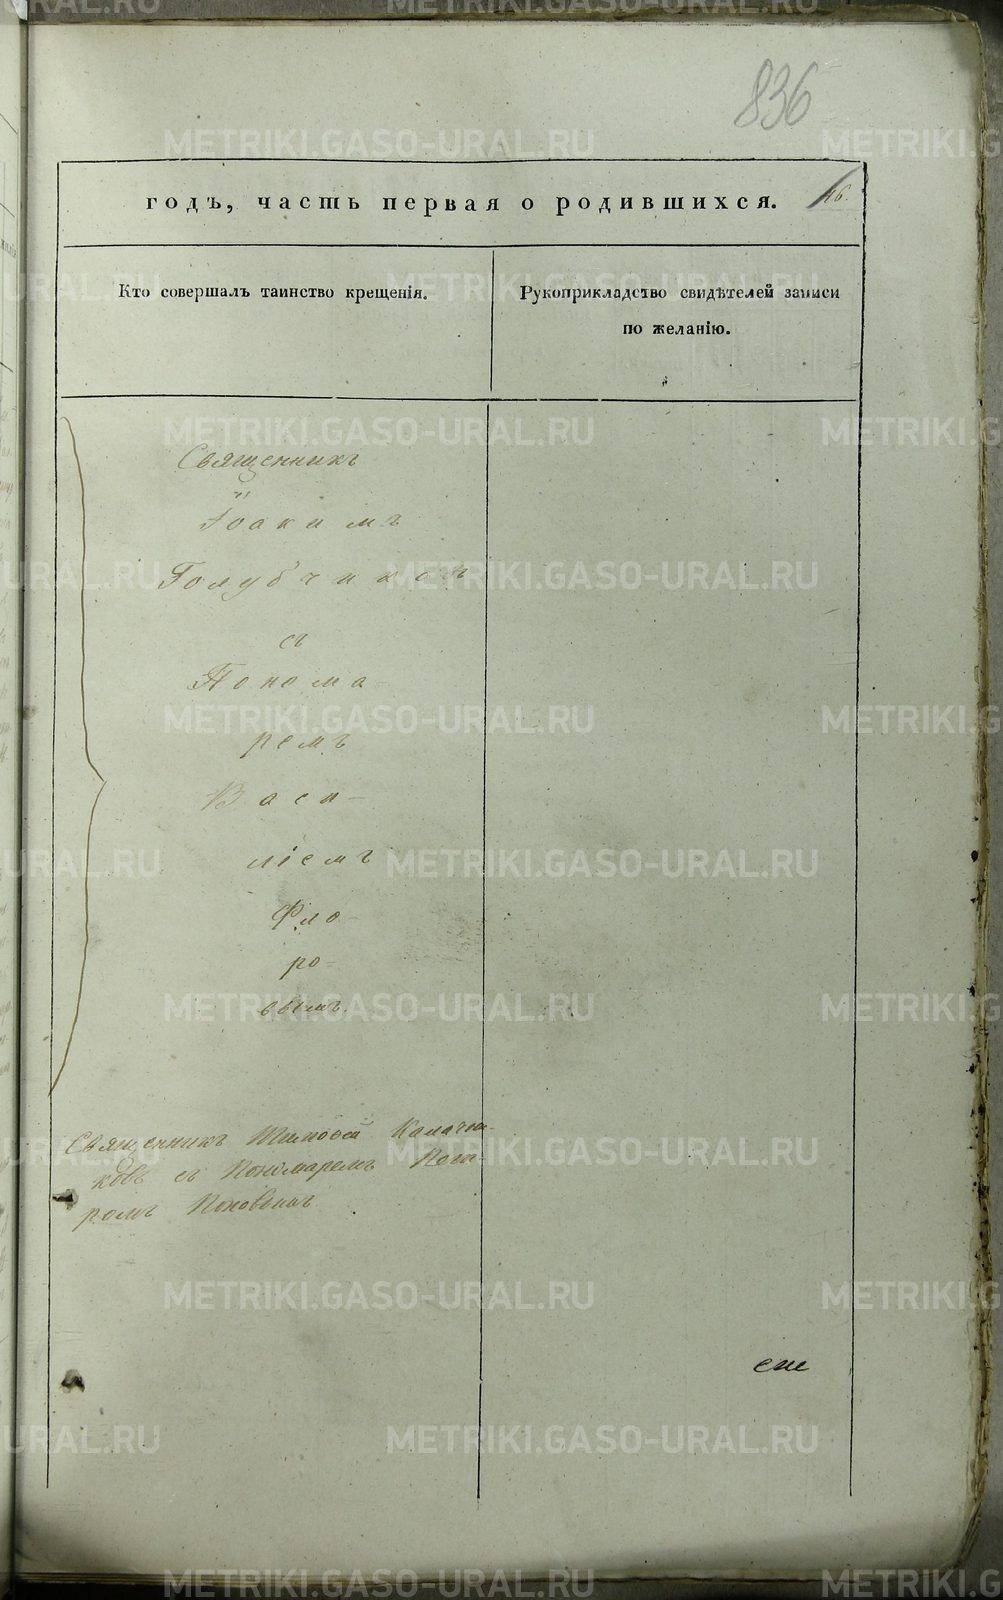 836
годъ, часть первая о родившихся. 46.
Кто совершалъ таинство крещенія.
Рукоприкладство свидѣтелей записи
по желанію.
Священникъ
Іоакимъ
Голубчиковъ
съ
Понома-
ремъ
Васи-
ліемъ
Фло-
ро-
вымъ.
Священникъ Тимофей Калачни-
ковъ съ Пономаремъ Пет-
ромъ Поповымъ
METRIKI.GASO-URAL.RU